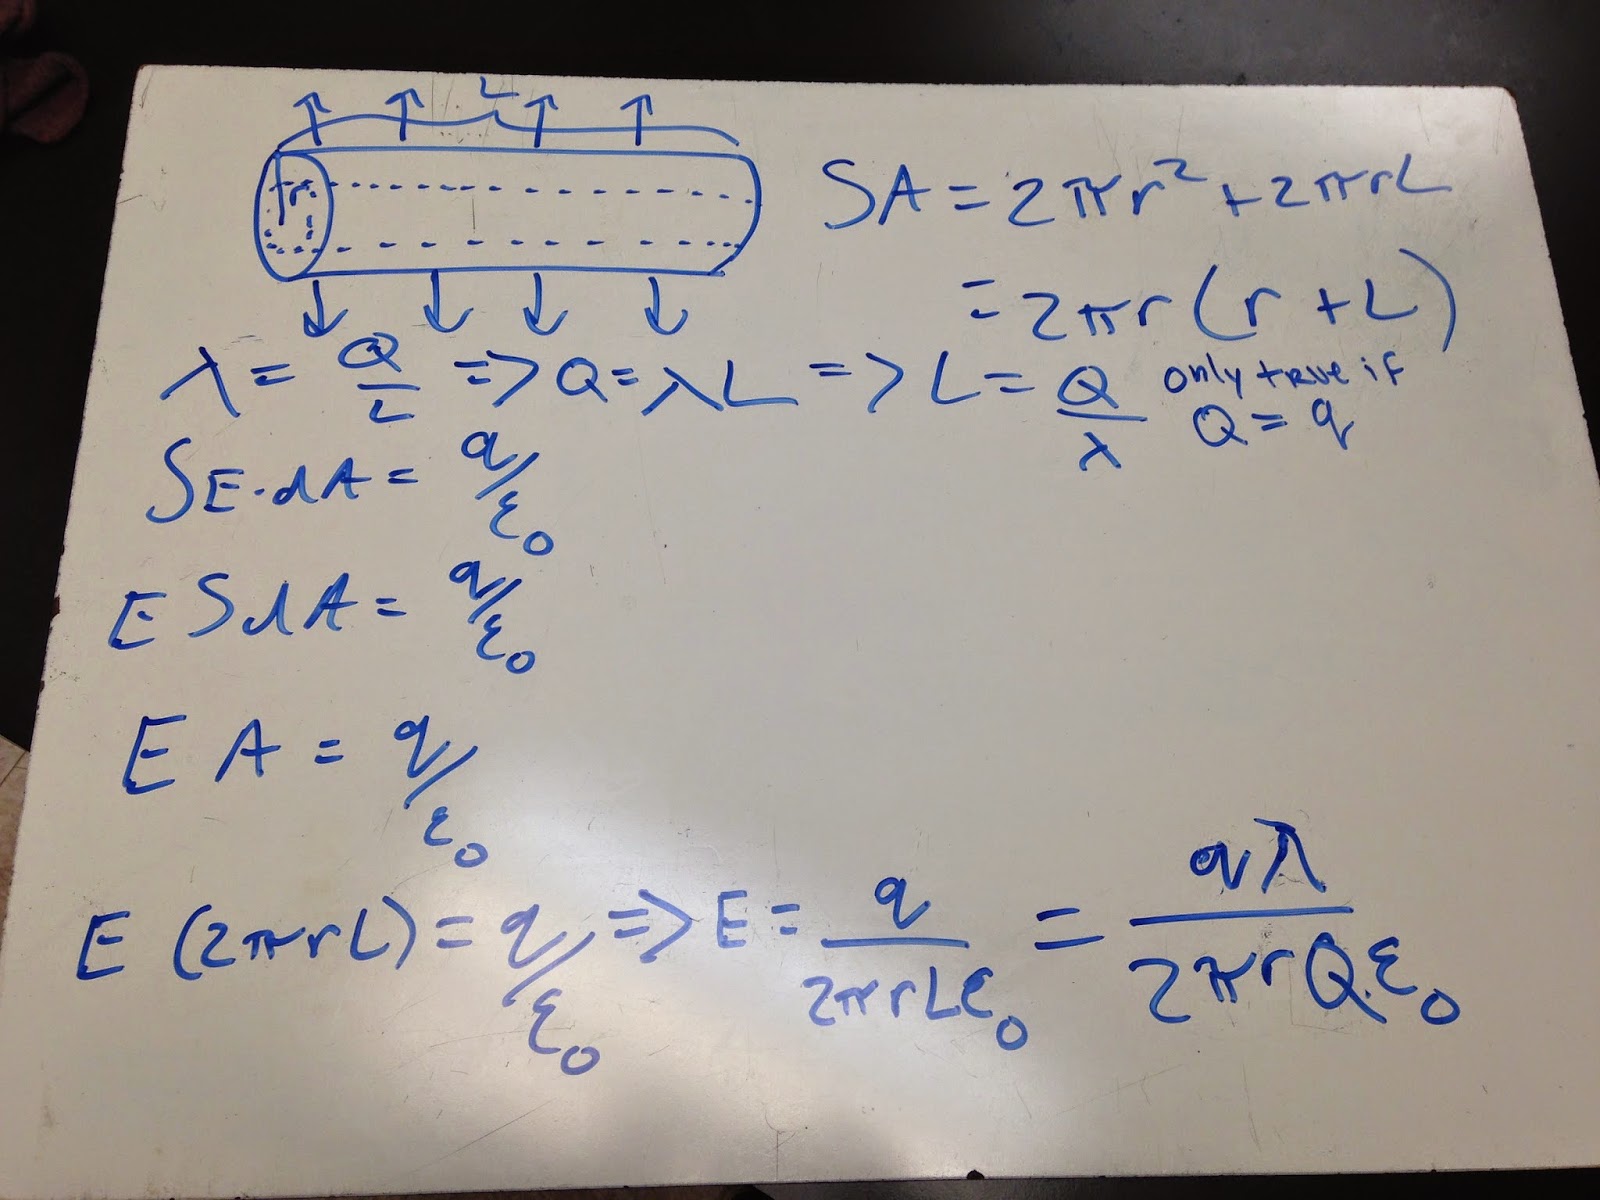 L
r
SA = 2πr² + 2πrL
= 2πr(r + L)
λ = Q/L => Q = λL => L = Q/λ only true if
Q = q
∫E·dA = q/ε₀
E∫dA = q/ε₀
E A = q/ε₀
E (2πrL) = q/ε₀ => E = q/2πrLε₀ = qλ/2πrQε₀